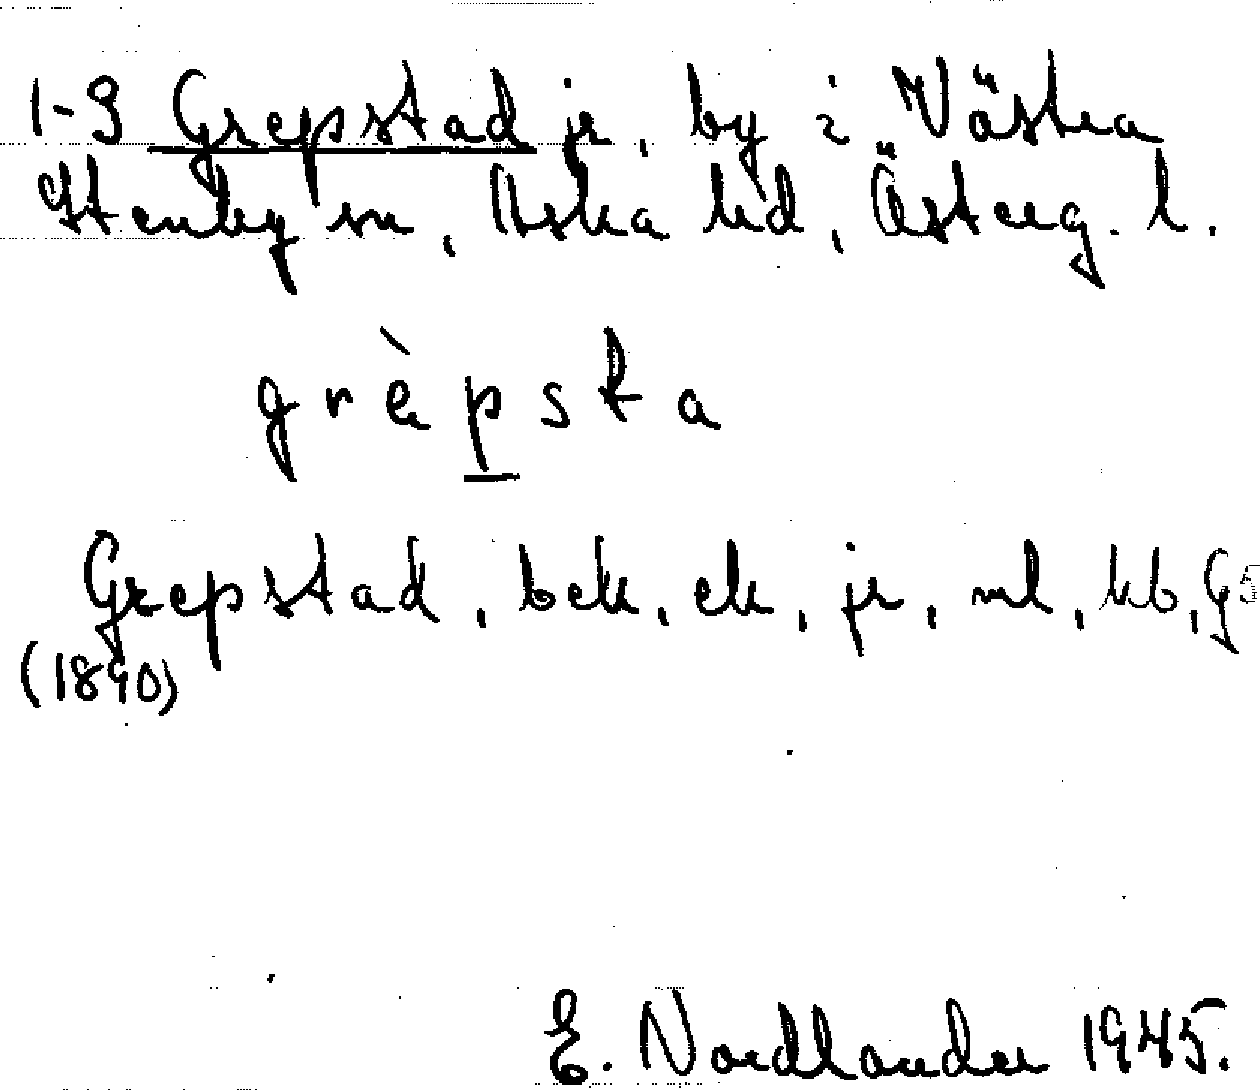 1-3 Grepstad jr, by i Västra
Stenby sn, Aska hd, Österg. l.
grèpsta
Grepstad, bek, ek, jr, ml, kb, G5
(1890)
E. Nordlander 1945.